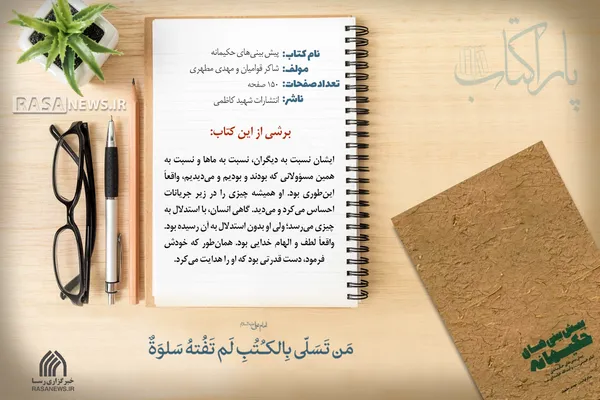 پاراکتاب
RASANEWS.IR
نام کتاب: پیش بینی‌های حکیمانه
مولف: شاکر قوامیان و مهدی مطهری
تعداد صفحات: ۱۵۰ صفحه
ناشر: انتشارات شهید کاظمی
برشی از این کتاب:
ایشان نسبت به دیگران، نسبت به ماها و نسبت به
همین مسؤولانی که بودند و بودیم و می‌دیدیم، واقعاً
این‌طوری بود. او همیشه چیزی را در زیر جریانات
احساس می‌کرد و می‌دید. گاهی انسان، با استدلال به
چیزی می‌رسد؛ ولی او بدون استدلال به آن رسیده بود.
واقعاً لطف و الهام خدایی بود. همان‌طور که خودش
فرمود، دست قدرتی بود که او را هدایت می‌کرد.
پیش بینی های
حکیمانه
مَن تَسَلّی بِالکُتُبِ لَم تَفُتهُ سَلوَةٌ
خبرگزاری رسا
RASANEWS.IR